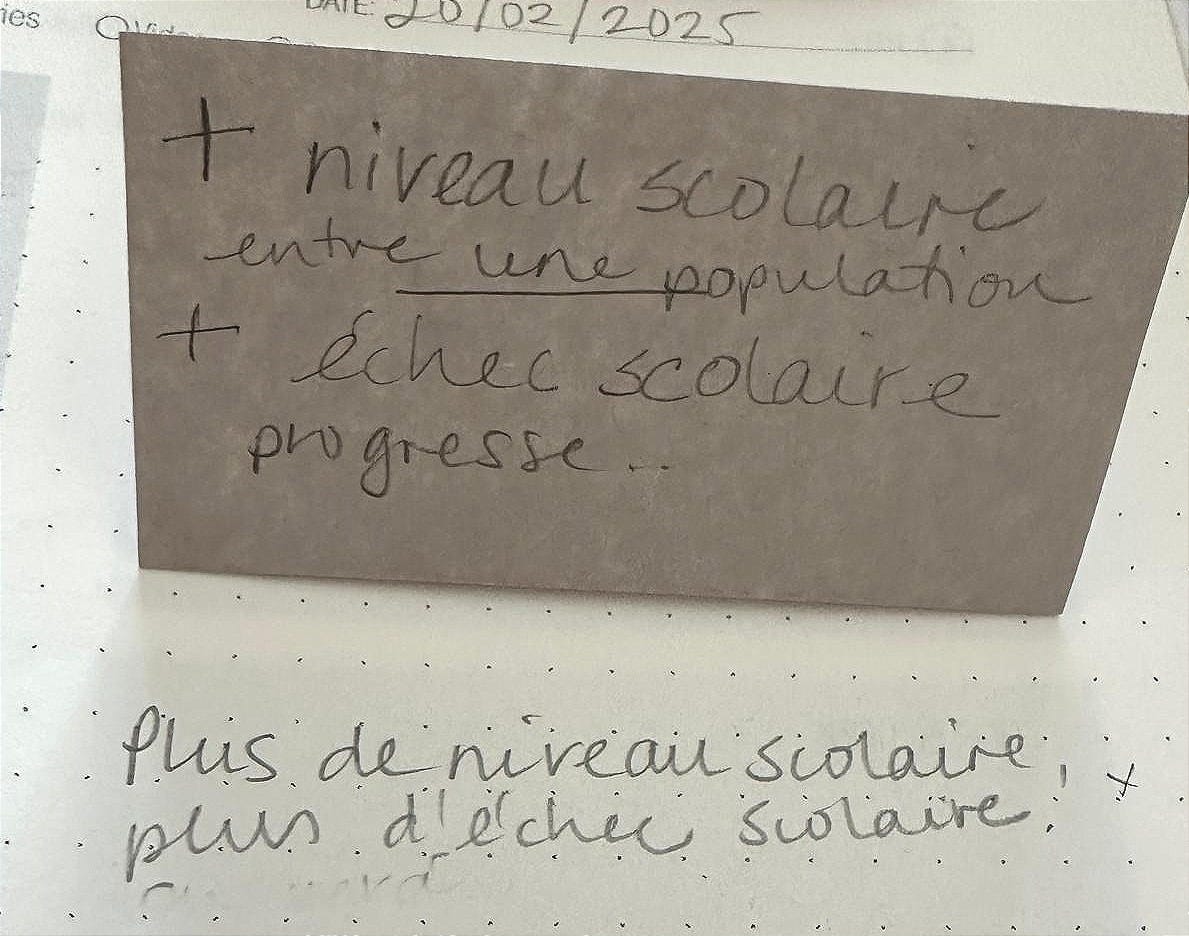 ies
DATE: 20/02/2025
+ niveau scolaire
entre une population
+ échec scolaire
progresse...
Plus de niveau scolaire, +
plus d'échec scolaire.